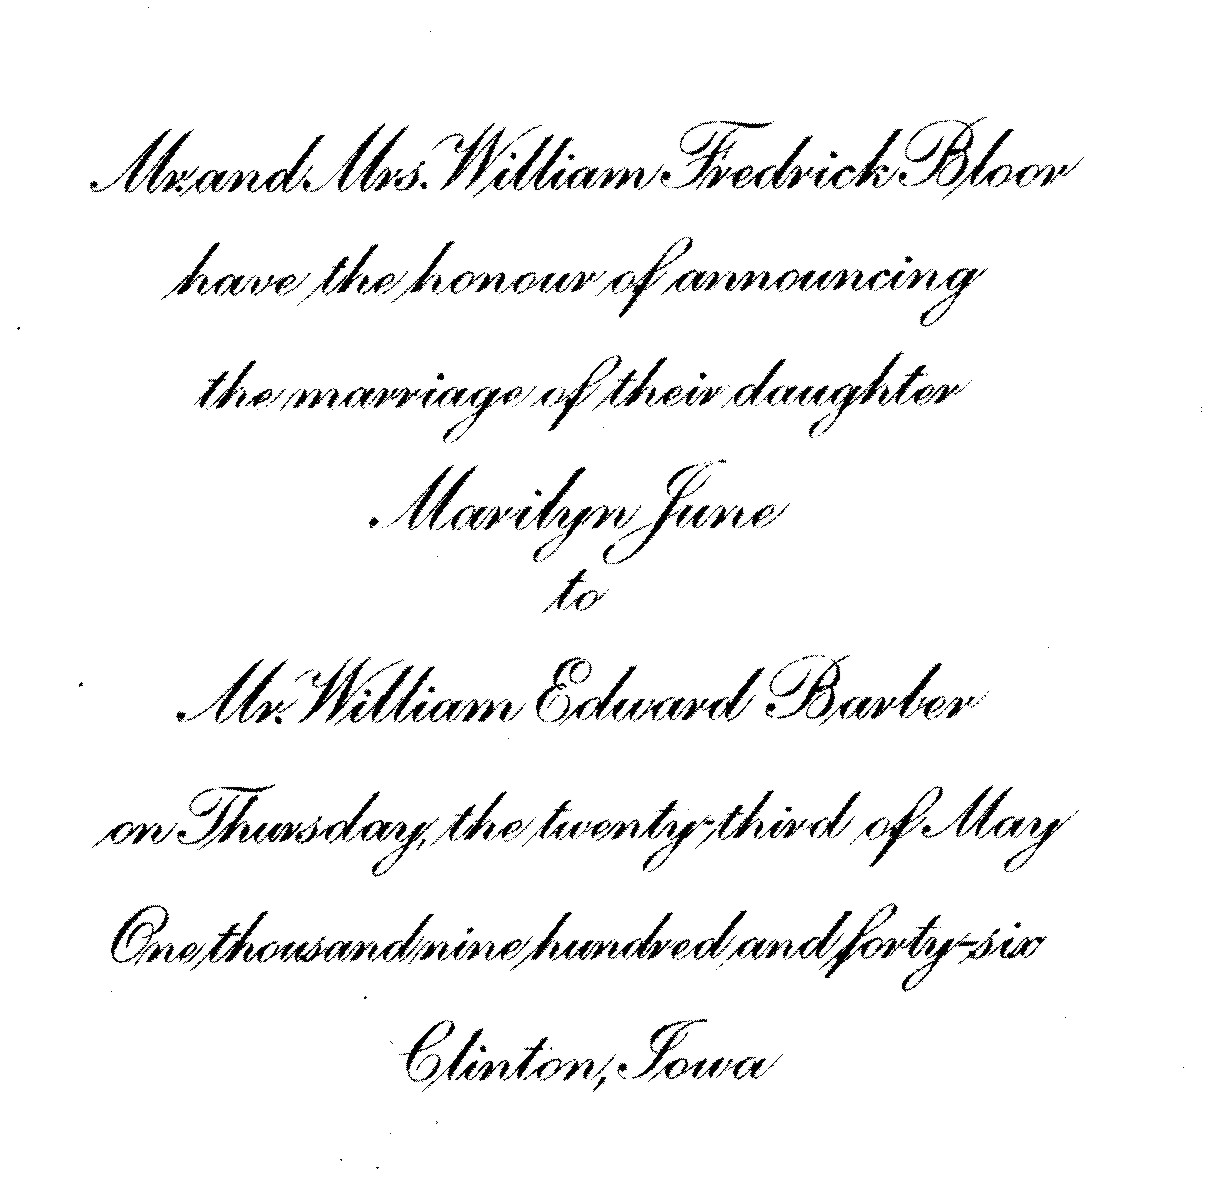 Mr. and Mrs. William Fredrick Bloor
have the honour of announcing
the marriage of their daughter
Marilyn June
to
Mr. William Edward Barber
on Thursday, the twenty-third of May
One thousand nine hundred and forty-six
Clinton, Iowa